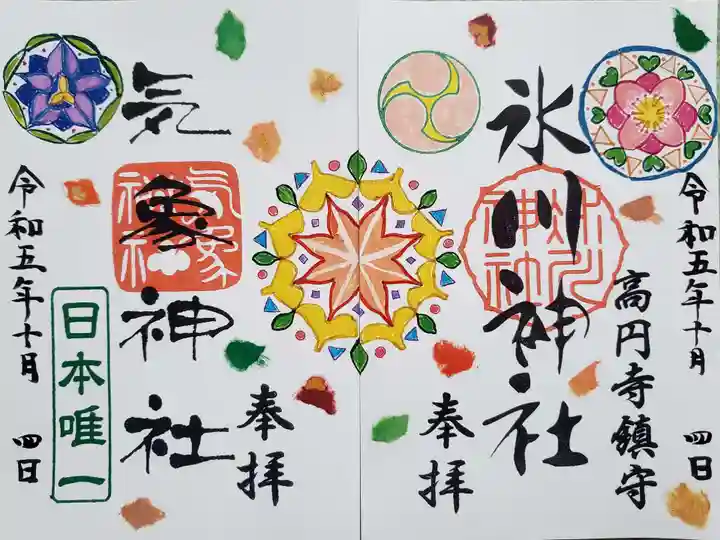 令和五年十月 四日
高円寺鎮守
氷川神社
氷川神社
奉拝
気象神社
気象神社
奉拝
日本唯一
令和五年十月 四日